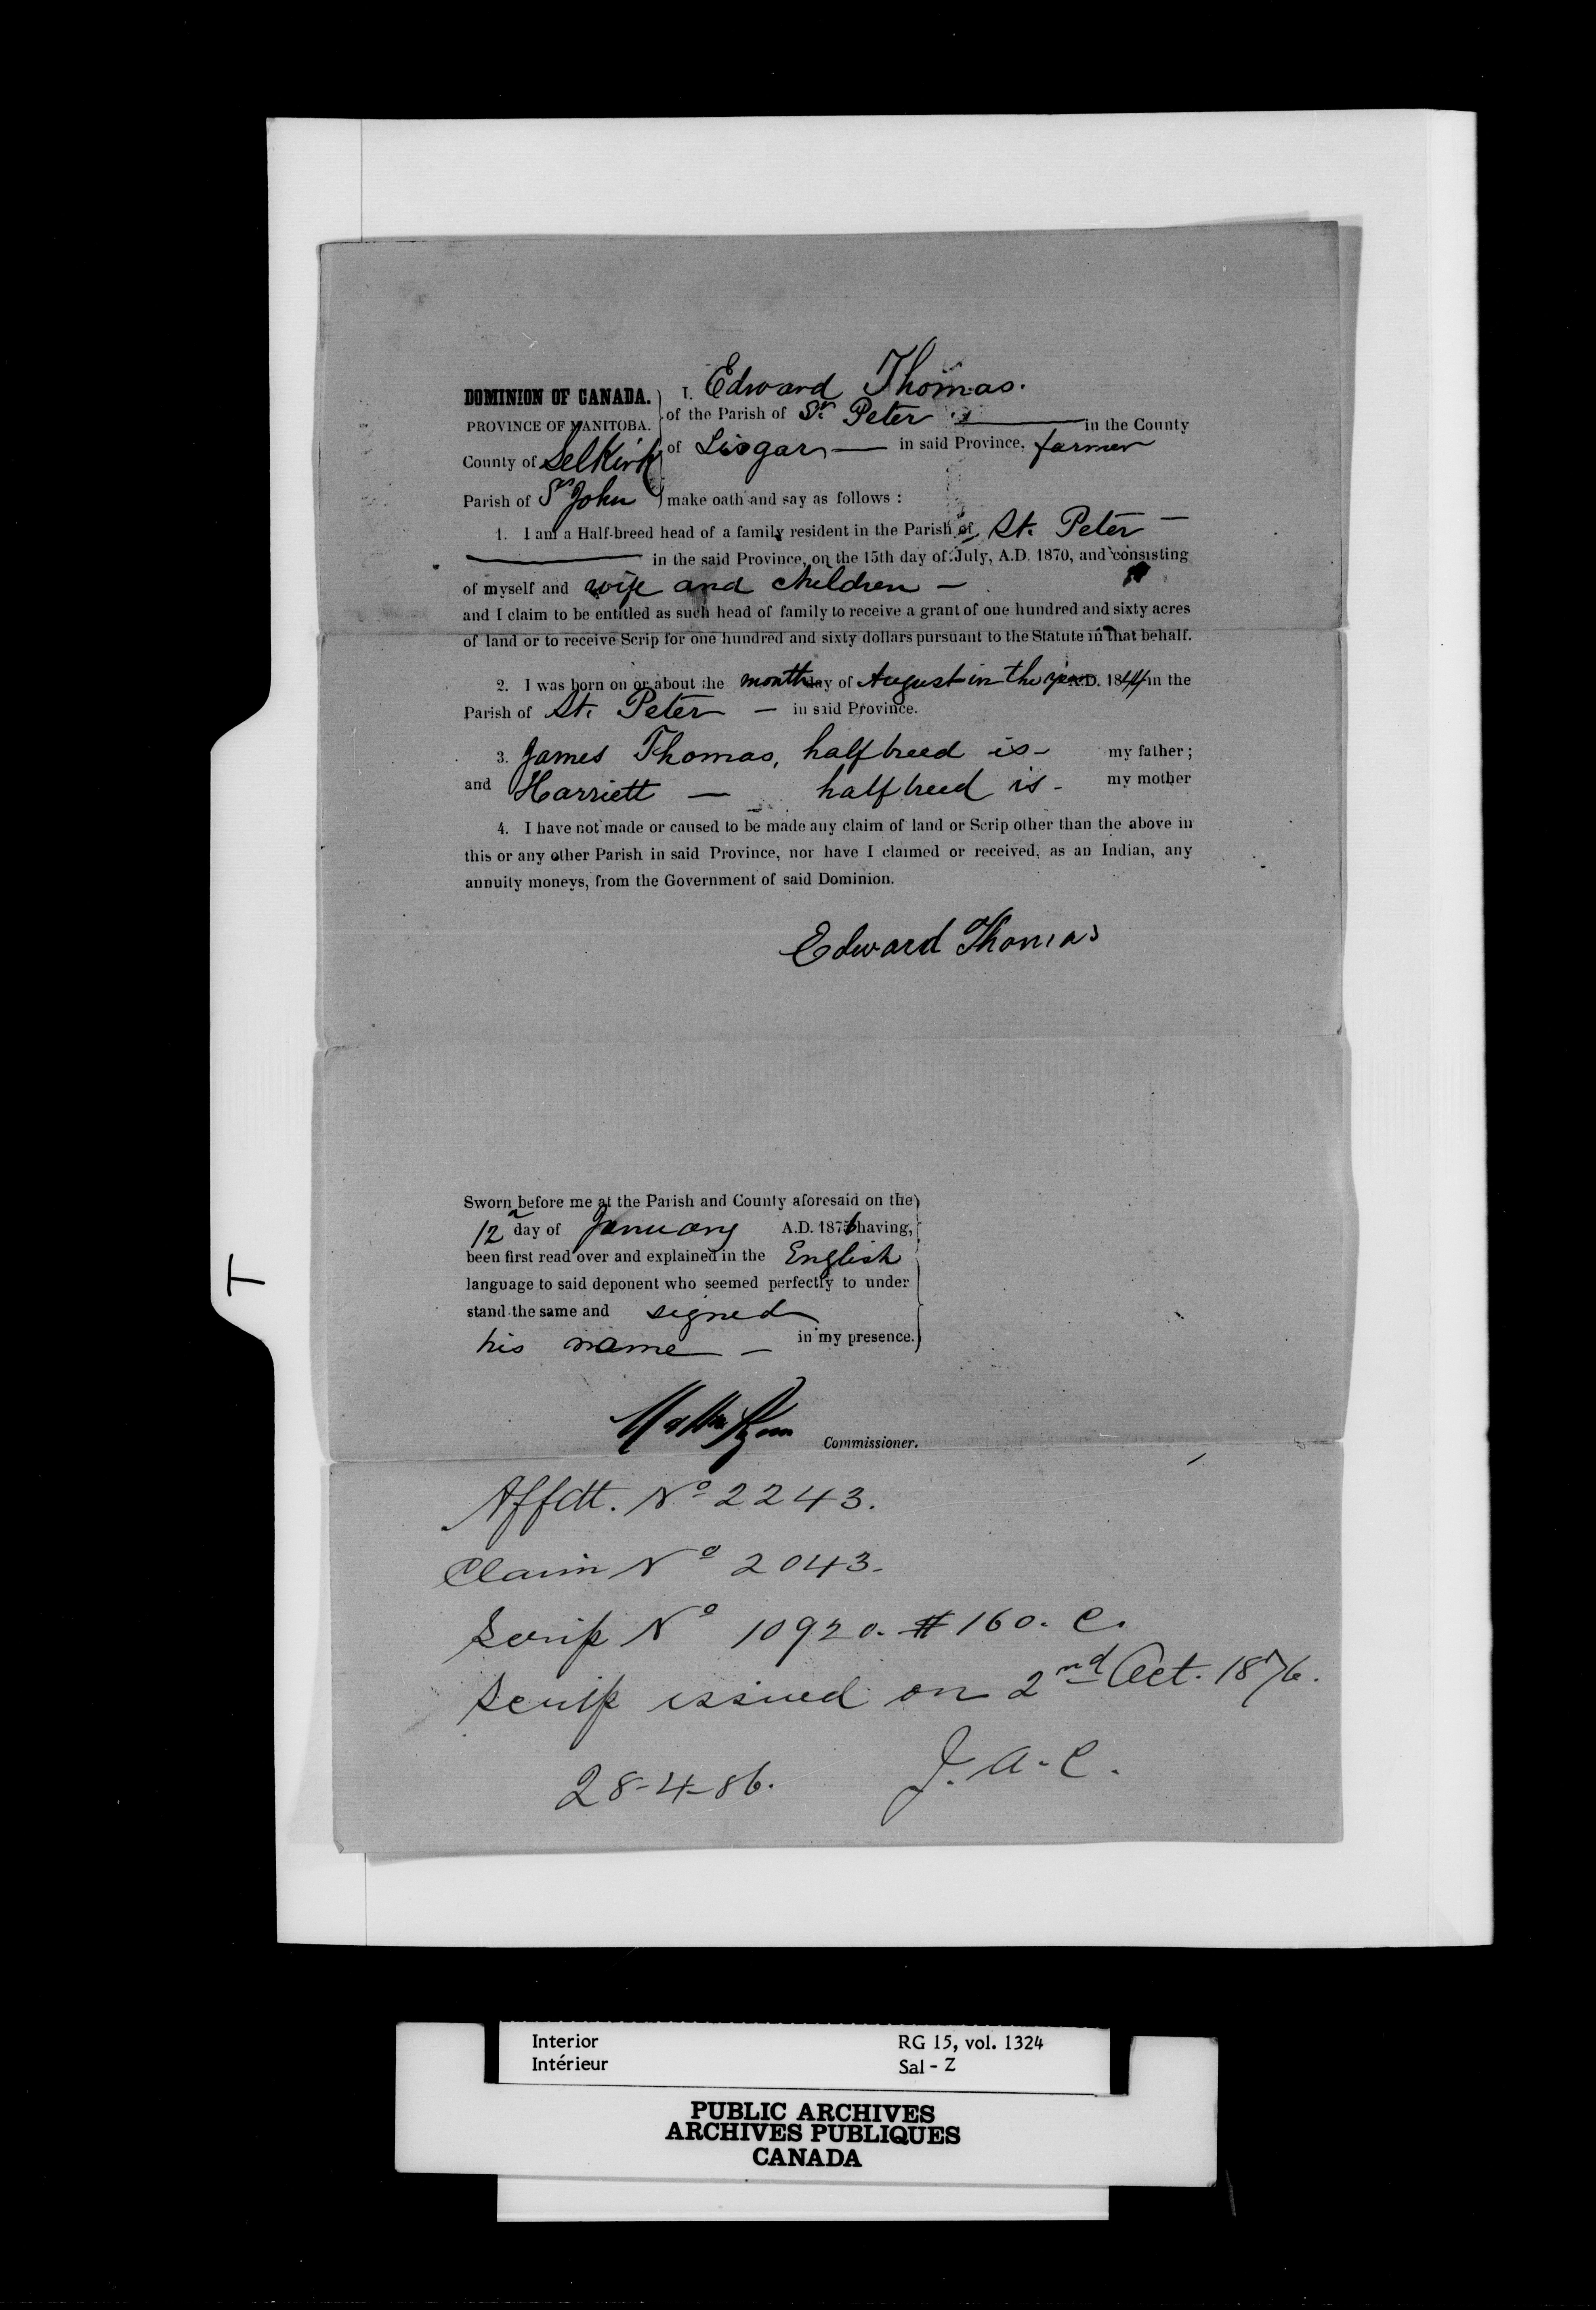 DOMINION OF CANADA. I. Edward Thomas.
PROVINCE OF MANITOBA. of the Parish of St. Peter in the County
County of Selkirk of Lisgar — in said Province, farmer
Parish of St John make oath and say as follows :
1. I am a Half-breed head of a family resident in the Parish of St. Peter —
in the said Province, on the 15th day of July, A.D. 1870, and consisting
of myself and wife and children —
and I claim to be entitled as such head of family to receive a grant of one hundred and sixty acres
of land or to receive Scrip for one hundred and sixty dollars pursuant to the Statute in that behalf.
2. I was born on or about the month day of August in the year A.D. 1844 in the
Parish of St. Peter — in said Province.
3. James Thomas, halfbreed is — my father ;
and Harriett — halfbreed is - my mother
4. I have not made or caused to be made any claim of land or Scrip other than the above in
this or any other Parish in said Province, nor have I claimed or received, as an Indian, any
annuity moneys, from the Government of said Dominion.
Edward Thomas
Sworn before me at the Parish and County aforesaid on the
12 day of January A.D. 1876 having,
been first read over and explained in the English
language to said deponent who seemed perfectly to under
stand the same and signed
his name — in my presence.
Commissioner.
Affdtt. No 2243.
Claim No 2043.
Scrip No 10920. $160. C.
Scrip issued on 2nd Oct. 1876.
28-4-86. J. A. C.
T
Interior RG 15, vol. 1324
Intérieur Sal - Z
PUBLIC ARCHIVES
ARCHIVES PUBLIQUES
CANADA